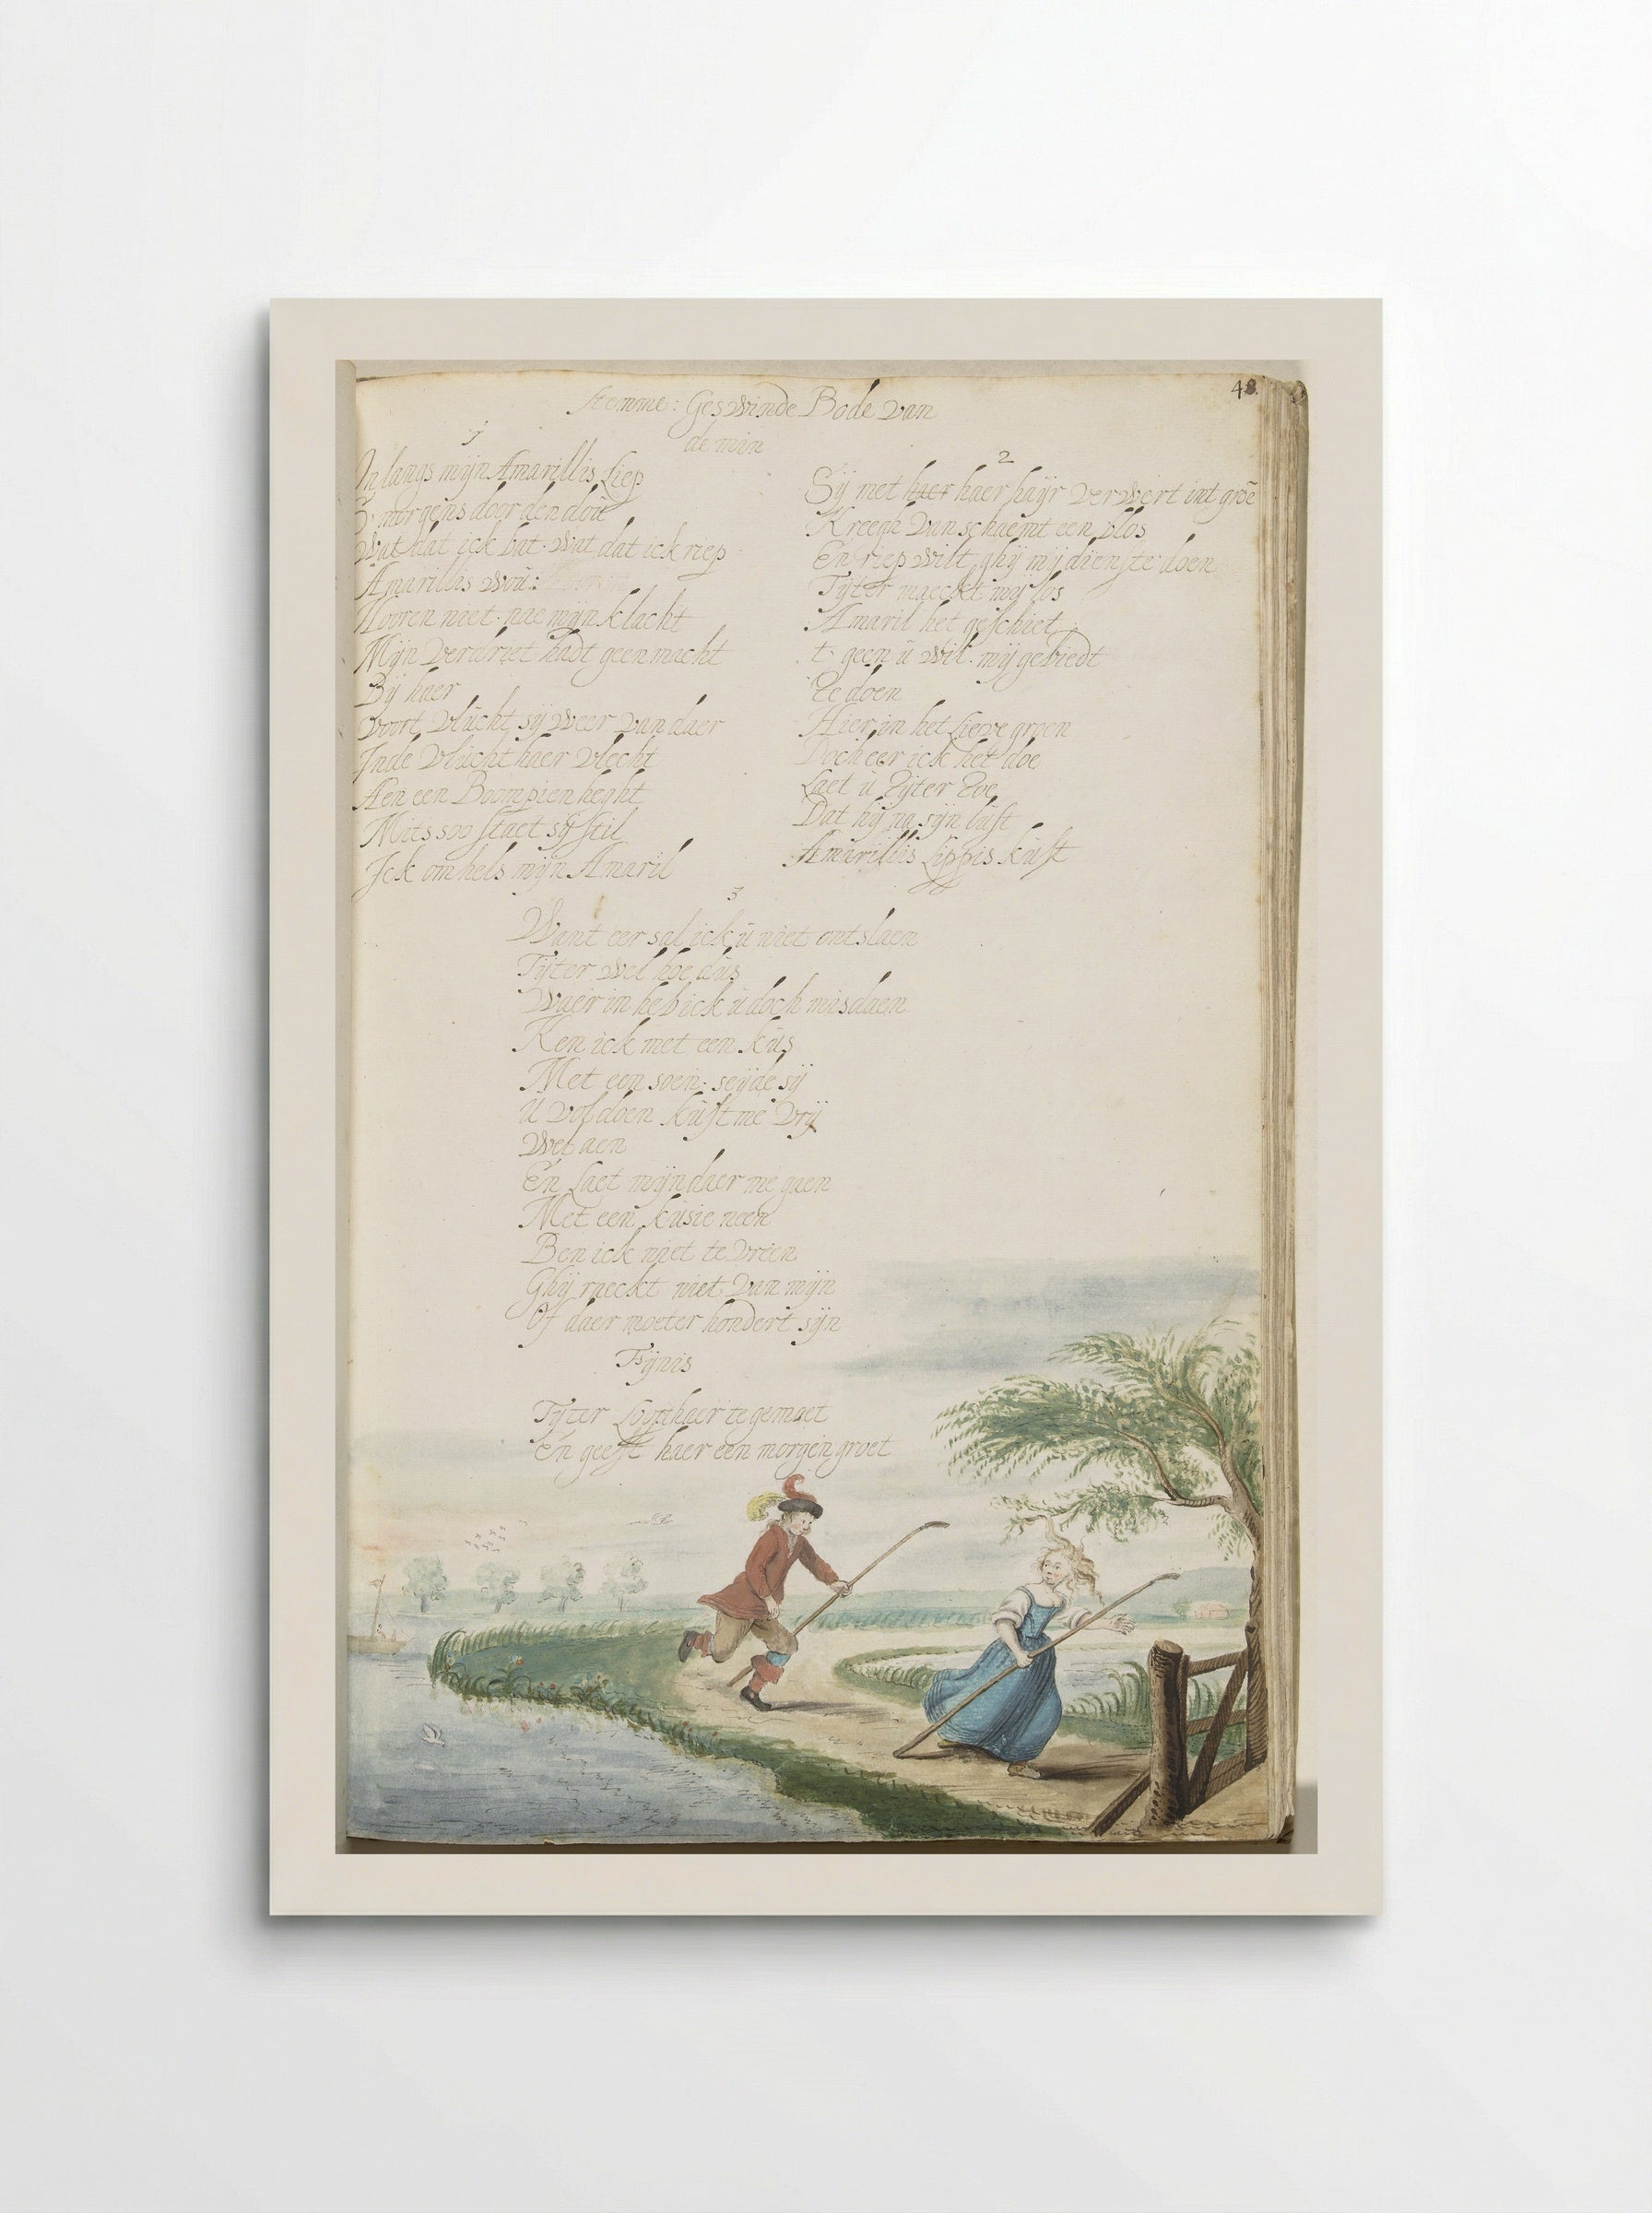 48
Stemme: Geswinde Bode van
de min
1
In langs mijn Amarillis Liep
S' morgens door den dou
Wat dat ick bat. Wat dat ick riep
Amarillis wou:
Hooren niet. nae mijn klacht
Mijn verdriet hadt geen macht
Bij haer
voort vlucht sij weer van daer
Inde vlucht haer vlecht
Aen een Boompien heght
Mits soo staet sij stil
Ick omhels mijn Amaril
2
Sij met haer haer hayr verwert int groe
Kreegh van schaemt een blos
En riep wilt ghij mij dienste doen
Tijter maeckt mij los
Amaril het geschiet
t. geen u wil. mij gebiedt
Te doen
Hier in het Lieve groen
Doch eer ick het doe
Laet u Tijter Toe
Dat hij na sijn lust
Amarillis Lippis kust
3
Want eer sal ick u niet ontslaen
Tijter wel hoe dus
Waer in heb ick u doch misdaen
Ken ick met een kus
Met een soen. seijde sij
U voldoen kust me vrij
Wel aen
En Laet mijn daer me gaen
Met een kusie neen
Ben ick niet te vreen
Ghij raeckt niet van mijn
Of daer moeter hondert sijn
Fijnis
Tijter Loopt haer te gemoet
En geeft haer een morgen groet